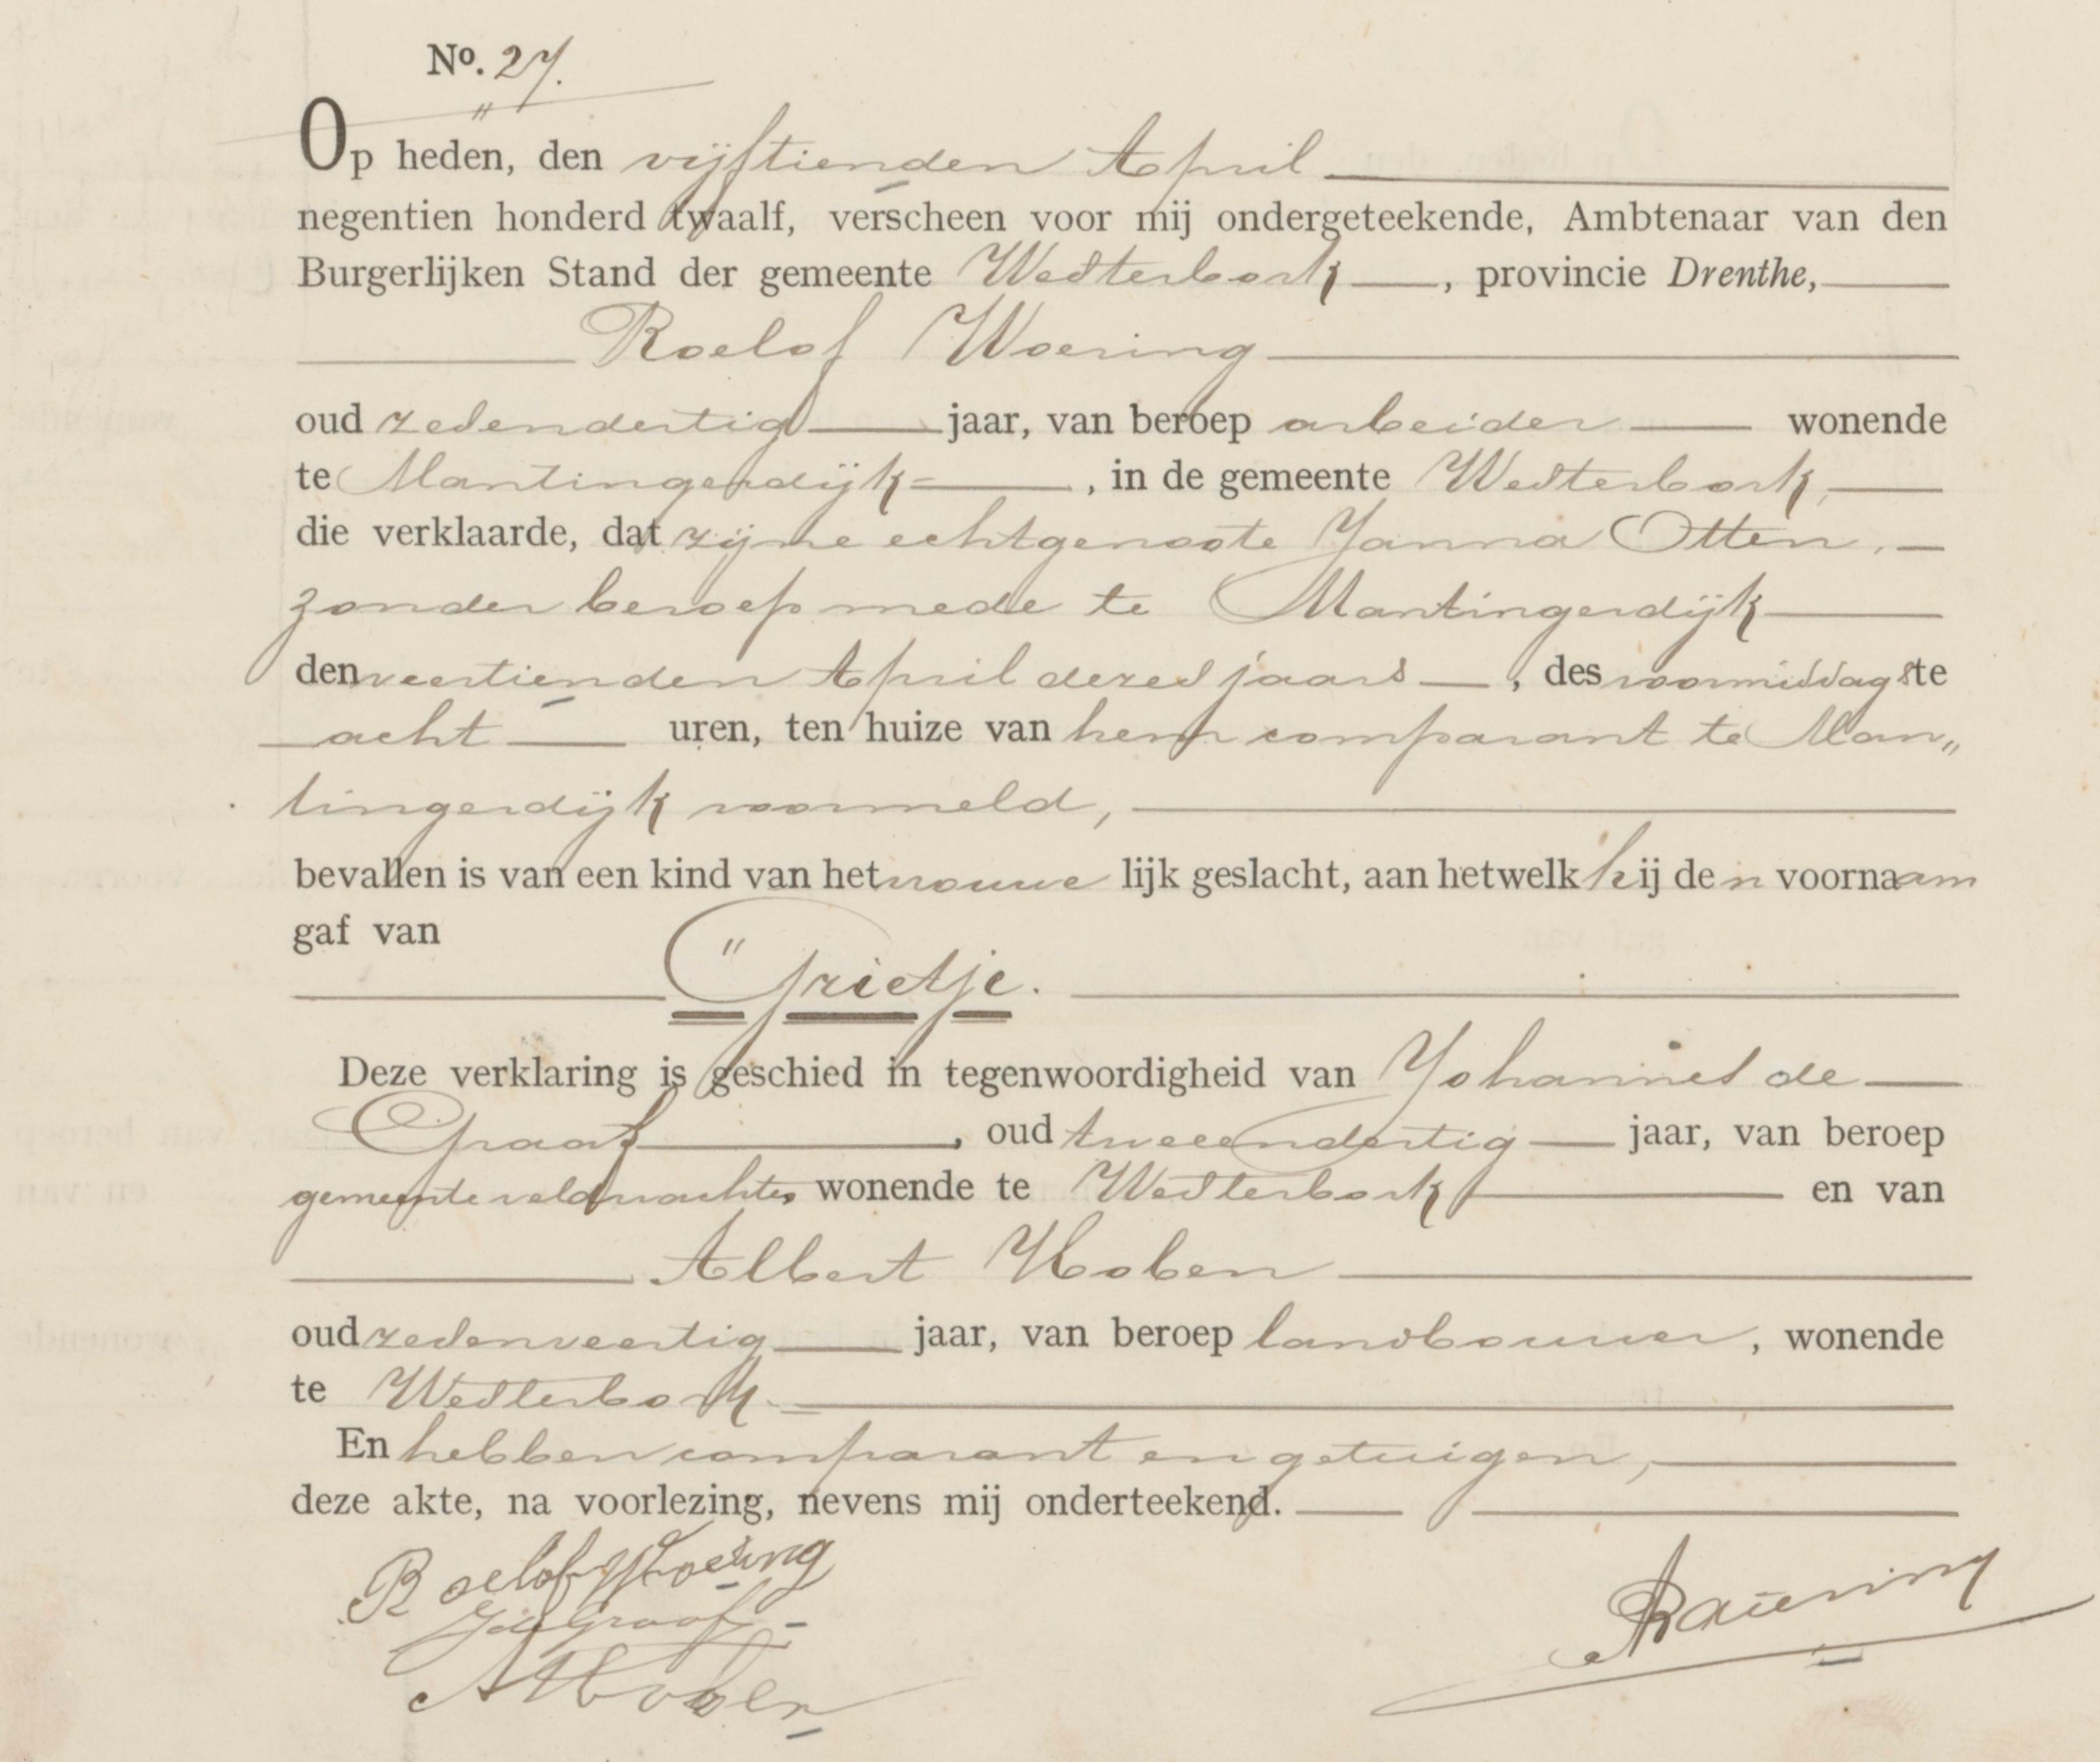 Nº. 27.
Op heden, den vijftienden April
negentien honderd twaalf, verscheen voor mij ondergeteekende, Ambtenaar van den
Burgerlijken Stand der gemeente Westerbork, provincie Drenthe,
Roelof Woering
oud zesendertig jaar, van beroep arbeider wonende
te Mantingerdijk, in de gemeente Westerbork,
die verklaarde, dat zijne echtgenoote Janna Otten,
zonder beroep mede te Mantingerdijk
den veertienden April dezes jaars, des voormiddags te
acht uren, ten huize van hem comparant te Man„
tingerdijk voormeld,
bevallen is van een kind van het vrouwe lijk geslacht, aan hetwelk hij den voornaam
gaf van
"Grietje.
Deze verklaring is geschied in tegenwoordigheid van Johannes de
Graaf, oud tweeendertig jaar, van beroep
gemeenteveldwachter wonende te Westerbork en van
Albert Hoben
oud zesenveertig jaar, van beroep landbouwer, wonende
te Westerbork.
En hebben comparant en getuigen,
deze akte, na voorlezing, nevens mij onderteekend.
Roelof Woering
J de Graaf
A Hoben